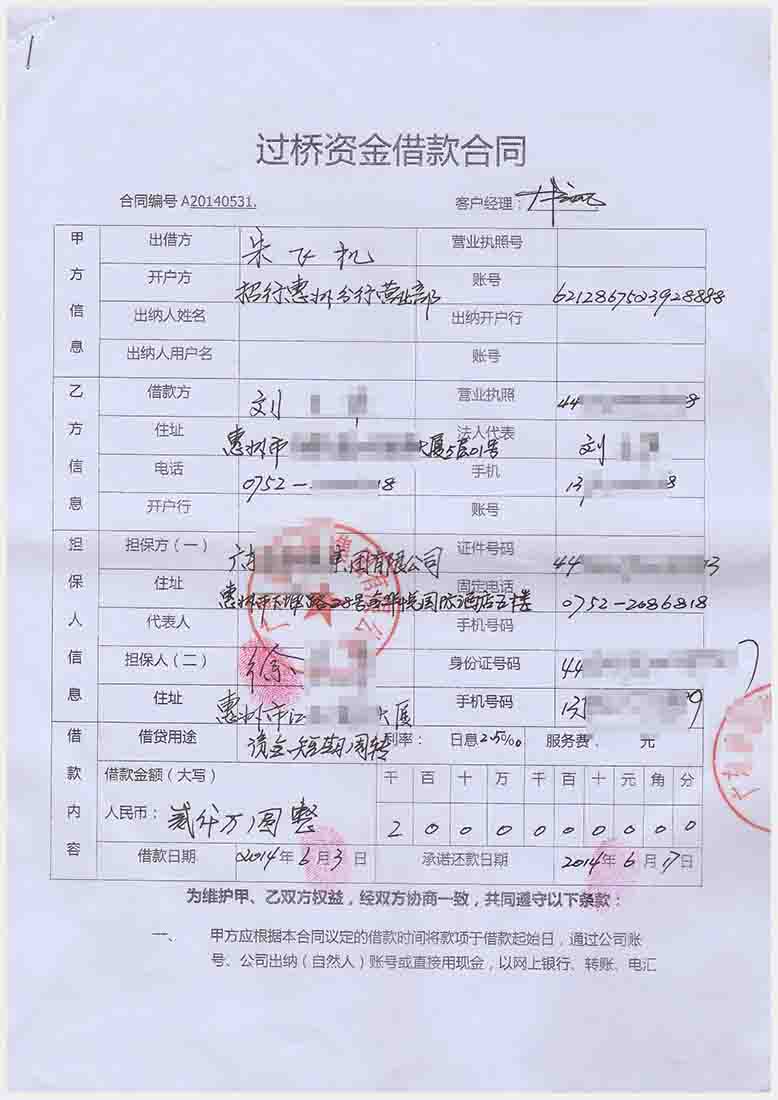 过桥资金借款合同
合同编号 A20140531. 客户经理：
甲方信息
出借方 朱飞机 营业执照号
开户方 招行惠州分行营业部 账号 6212867523928888
出纳人姓名 出纳开户行
出纳人用户名 账号
乙方信息
借款方 刘 营业执照 44 8
住址 惠州市 大厦5层01号 法人代表 刘
电话 0752- 18 手机 13 8
开户行 账号
担保人信息
担保方（一） 广东 集团有限公司 证件号码 44 13
住址 惠州市下埔路28号 国际酒店五楼 固定电话 0752-2086818
代表人 手机号码
担保人（二） 徐 身份证号码 44 7
住址 惠州市江 大厦 手机号码 13 9
借款内容
借贷用途 资金短期周转 利率： 日息2.5‰ 服务费. 元
借款金额（大写） 千 百 十 万 千 百 十 元 角 分
人民币： 贰仟万圆整 2 0 0 0 0 0 0 0 0 0
借款日期 2014年 6 月 3 日 承诺还款日期 2014年 6 月 17日
为维护甲、乙双方权益，经双方协商一致，共同遵守以下条款：
一、 甲方应根据本合同议定的借款时间将款项于借款起始日，通过公司账
号、公司出纳（自然人）账号或直接用现金，以网上银行、转账、电汇